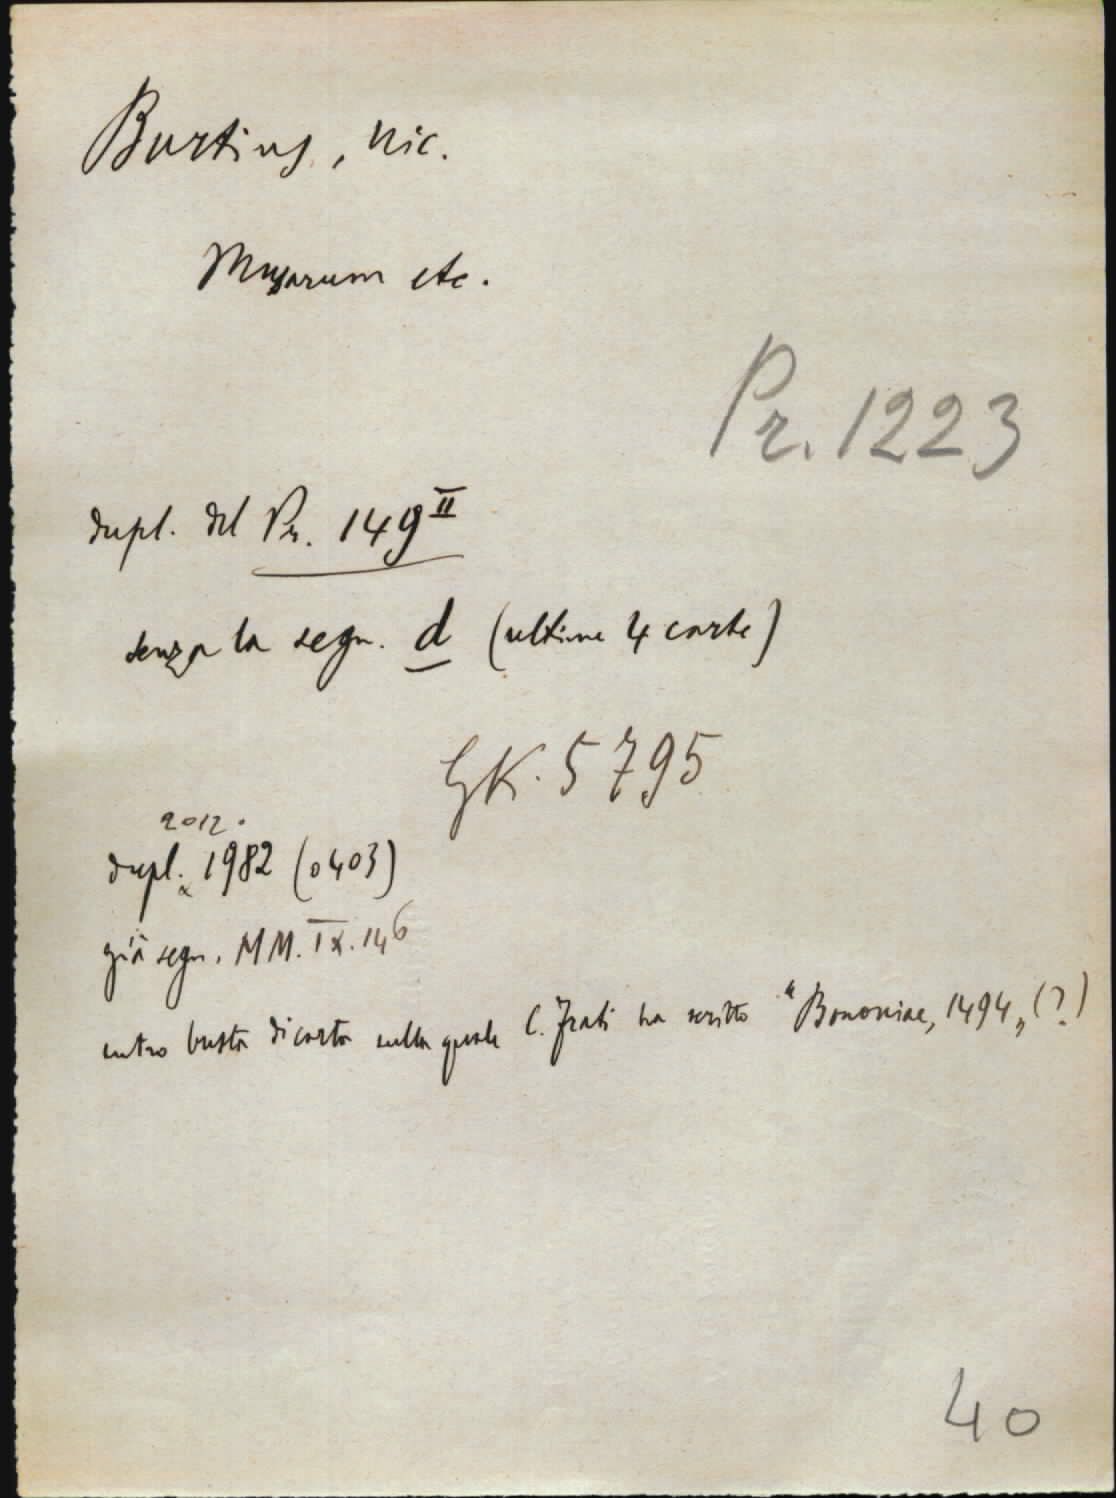 Burtius, Nic.
Musarum etc.
Pr. 1223
dupl. del Pr. 149 II
senza la segn. d (ultime 4 carte)
GK. 5795
2012.
dupl. 1982 (0403)
già segn. MM. IX. 146
entro busta di carta sulla quale C. Frati ha scritto "Bononiae, 1494„ (?)
40